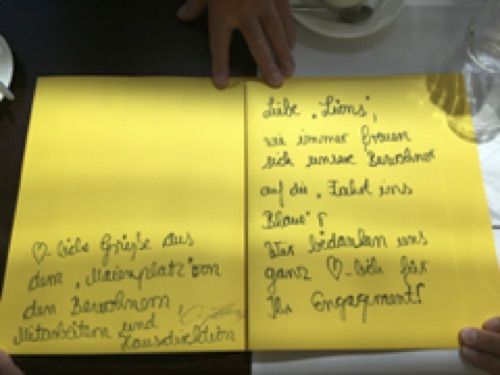 ♡-liche Grüße aus
dem „Maienplatz" von
den Bewohnern
Mitarbeitern und
Hausdirektion
Liebe „Lions",
wie immer freuen
sich unsere Bewohner
auf die „Fahrt ins
Blaue"!
Wir bedanken uns
ganz ♡-lich für
Ihr Engagement!